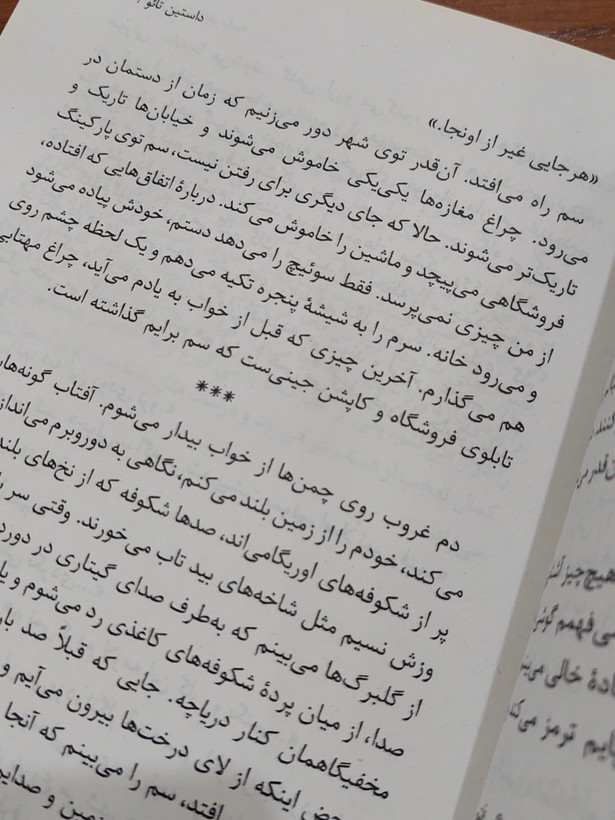 داستین تائو
«هرجایی غیر از اونجا.»
سم راه می‌افتد. آن‌قدر توی شهر دور می‌زنیم که زمان از دستمان در
می‌رود. چراغ مغازه‌ها یکی‌یکی خاموش می‌شوند و خیابان‌ها تاریک و
تاریک‌تر می‌شوند. حالا که جای دیگری برای رفتن نیست، سم توی پارکینگ
فروشگاهی می‌پیچد و ماشین را خاموش می‌کند. دربارهٔ اتفاق‌هایی که افتاده،
از من چیزی نمی‌پرسد. فقط سوئیچ را می‌دهد دستم، خودش پیاده می‌شود
و می‌رود خانه. سرم را به شیشهٔ پنجره تکیه می‌دهم و یک لحظه چشم روی
هم می‌گذارم. آخرین چیزی که قبل از خواب به یادم می‌آید، چراغ مهتابی
تابلوی فروشگاه و کاپشن جینی‌ست که سم برایم گذاشته است.
***
دم غروب روی چمن‌ها از خواب بیدار می‌شوم. آفتاب
می‌کند، خودم را از زمین بلند می‌کنم، نگاهی به دوروبرم
پر از شکوفه‌های اوریگامی‌اند، صدها شکوفه که از نخ‌های
وزش نسیم مثل شاخه‌های بید تاب می‌خورند. وقتی سر
از گلبرگ‌ها می‌بینم که به‌طرف صدای گیتاری در
صدا، از میان پردهٔ شکوفه‌های کاغذی رد می‌شوم و
مخفیگاهمان کنار دریاچه. جایی که قبلاً صد
اینکه از لای درخت‌ها بیرون می‌آیم و
افتد، سم را می‌بینم که آنجا
و
هیچ‌چیز
خالی
ترمز